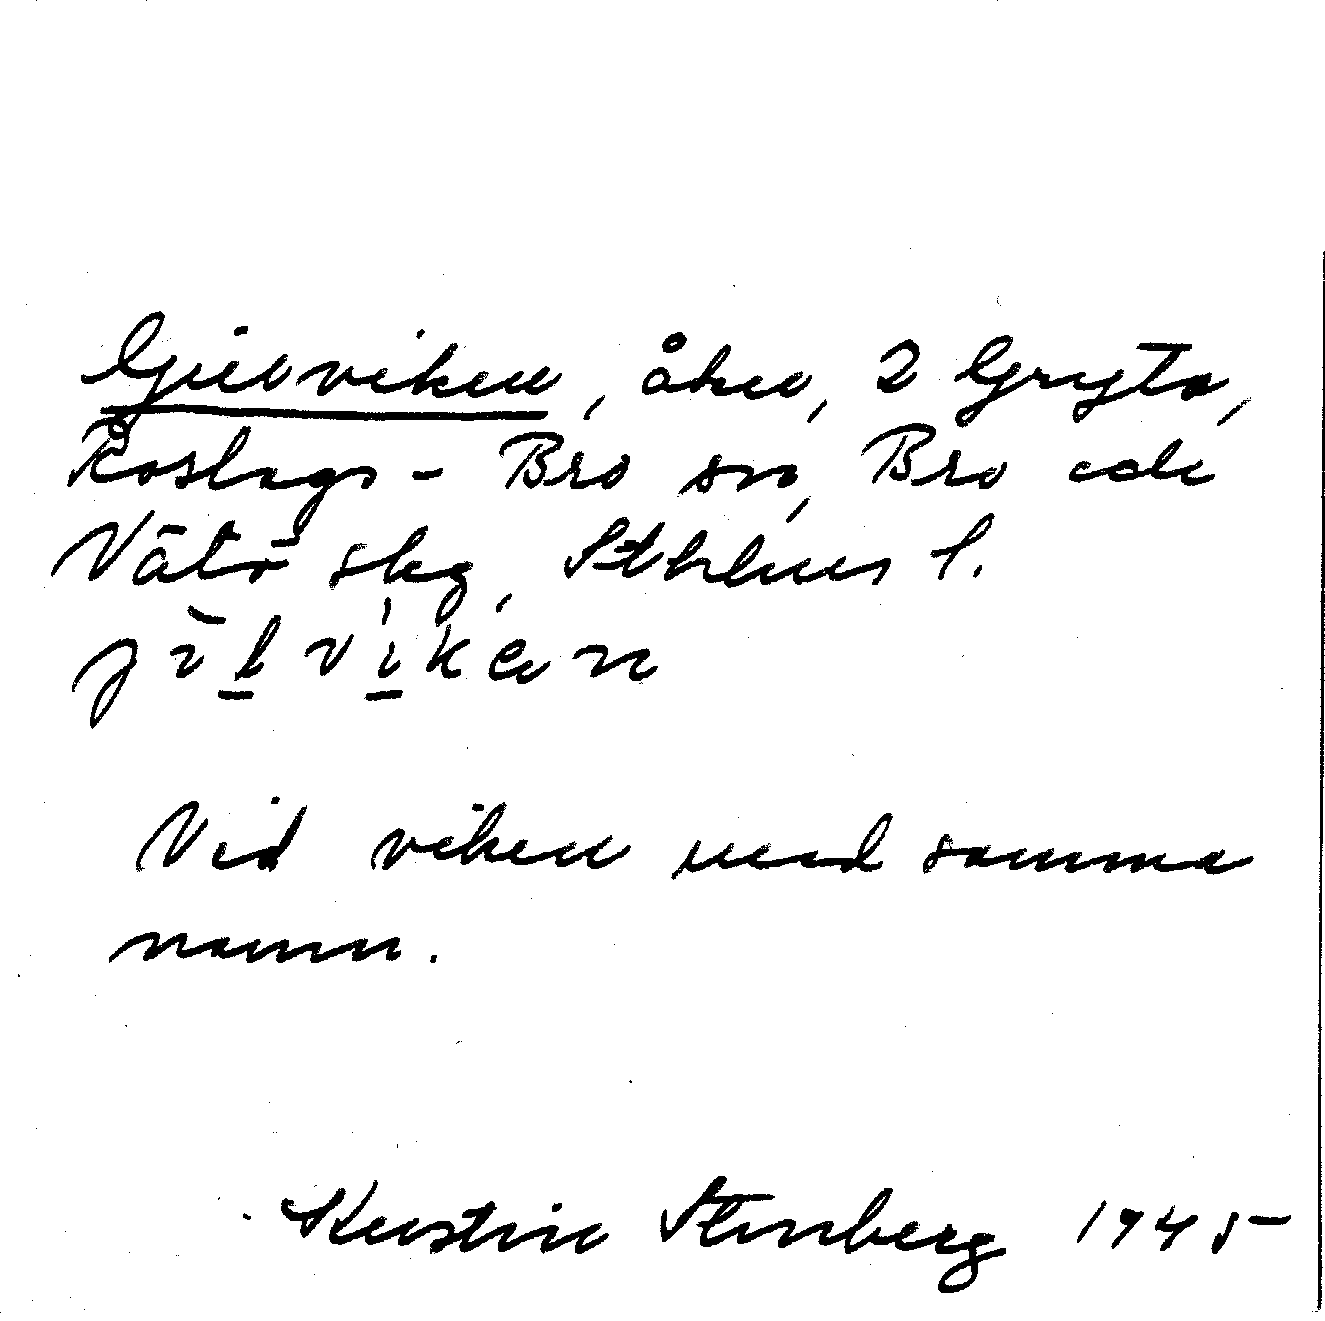 Gilviken, åker, 2 Gryta,
Roslags-Bro sn, Bro och
Vätö skg, Sthlms l.
jìlvikən
Vid viken med samma
namn.
Kerstin Stenberg 1945